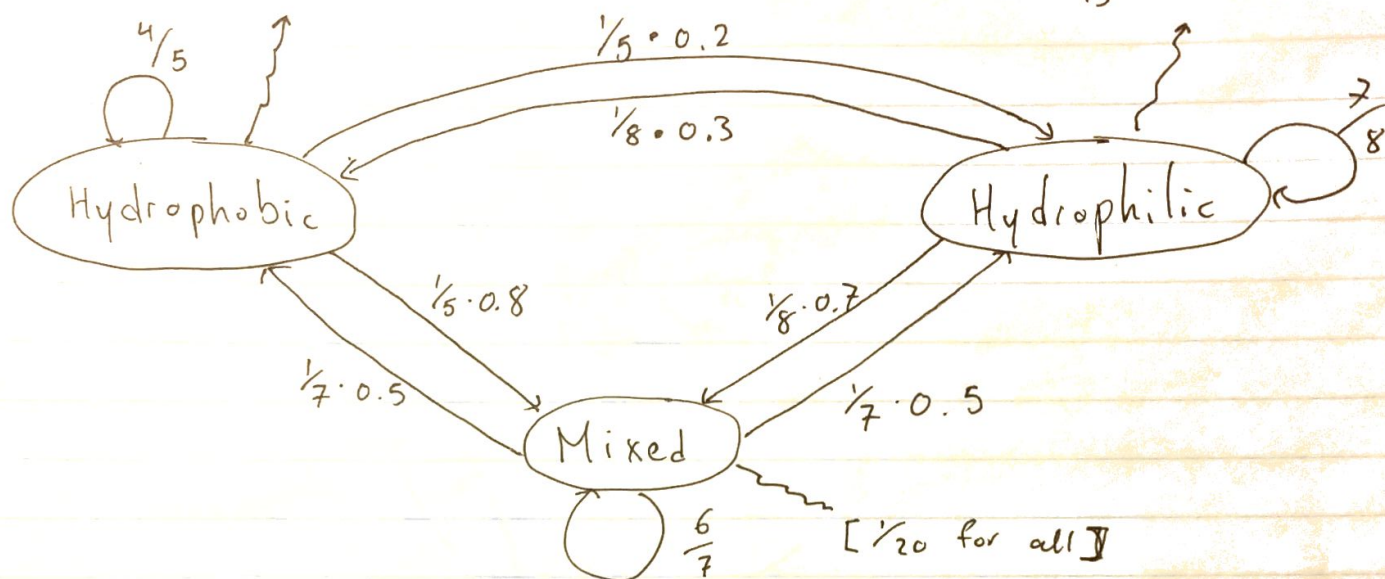 4/5
1/5 · 0.2
1/8 · 0.3
7/8
Hydrophobic
Hydrophilic
1/5 · 0.8
1/8 · 0.7
1/7 · 0.5
1/7 · 0.5
Mixed
6/7
[1/20 for all]